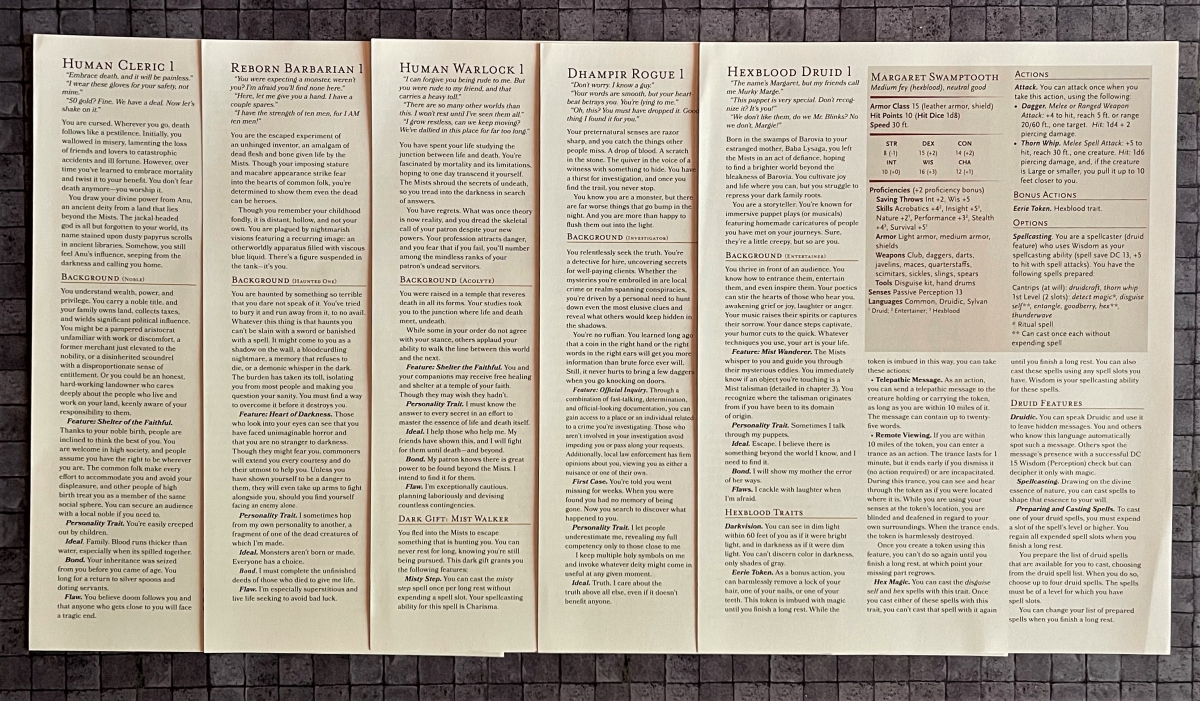 HUMAN CLERIC 1
"Embrace death, and it will be painless."
"I wear these gloves for your safety, not
mine."
"50 gold? Fine. We have a deal. Now let's
shake on it."
You are cursed. Wherever you go, death
follows like a pestilence. Initially, you
wallowed in misery, lamenting the loss
of friends and lovers to catastrophic
accidents and ill fortune. However, over
time you've learned to embrace mortality
and twist it to your benefit. You don't fear
death anymore—you worship it.
You draw your divine power from Anu,
an ancient deity from a land that lies
beyond the Mists. The jackal-headed
god is all but forgotten to your world, its
name stained upon dusty papyrus scrolls
in ancient libraries. Somehow, you still
feel Anu's influence, seeping from the
darkness and calling you home.
BACKGROUND (NOBLE)
You understand wealth, power, and
privilege. You carry a noble title, and
your family owns land, collects taxes,
and wields significant political influence.
You might be a pampered aristocrat
unfamiliar with work or discomfort, a
former merchant just elevated to the
nobility, or a disinherited scoundrel
with a disproportionate sense of
entitlement. Or you could be an honest,
hard-working landowner who cares
deeply about the people who live and
work on your land, keenly aware of your
responsibility to them.
Feature: Shelter of the Faithful.
Thanks to your noble birth, people are
inclined to think the best of you. You
are welcome in high society, and people
assume you have the right to be wherever
you are. The common folk make every
effort to accommodate you and avoid your
displeasure, and other people of high
birth treat you as a member of the same
social sphere. You can secure an audience
with a local noble if you need to.
Personality Trait. You're easily creeped
out by children.
Ideal. Family. Blood runs thicker than
water, especially when its spilled together.
Bond. Your inheritance was seized
from you before you came of age. You
long for a return to silver spoons and
doting servants.
Flaw. You believe doom follows you and
that anyone who gets close to you will face
a tragic end.
REBORN BARBARIAN 1
"You were expecting a monster, weren't
you? I'm afraid you'll find none here."
"Here, let me give you a hand. I have a
couple spares."
"I have the strength of ten men, for I AM
ten men!"
You are the escaped experiment of
an unhinged inventor, an amalgam of
dead flesh and bone given life by the
Mists. Though your imposing stature
and macabre appearance strike fear
into the hearts of common folk, you're
determined to show them even the dead
can be heroes.
Though you remember your childhood
fondly, it is distant, hollow, and not your
own. You are plagued by nightmarish
visions featuring a recurring image: an
otherworldly apparatus filled with viscous
blue liquid. There's a figure suspended in
the tank—it's you.
BACKGROUND (HAUNTED ONE)
You are haunted by something so terrible
that you dare not speak of it. You've tried
to bury it and run away from it, to no avail.
Whatever this thing is that haunts you
can't be slain with a sword or banished
with a spell. It might come to you as a
shadow on the wall, a bloodcurdling
nightmare, a memory that refuses to
die, or a demonic whisper in the dark.
The burden has taken its toll, isolating
you from most people and making you
question your sanity. You must find a way
to overcome it before it destroys you.
Feature: Heart of Darkness. Those
who look into your eyes can see that you
have faced unimaginable horror and
that you are no stranger to darkness.
Though they might fear you, commoners
will extend you every courtesy and do
their utmost to help you. Unless you
have shown yourself to be a danger to
them, they will even take up arms to fight
alongside you, should you find yourself
facing an enemy alone.
Personality Trait. I sometimes hop
from my own personality to another, a
fragment of one of the dead creatures of
which I'm made.
Ideal. Monsters aren't born or made.
Everyone has a choice.
Bond. I must complete the unfinished
deeds of those who died to give me life.
Flaw. I'm especially superstitious and
live life seeking to avoid bad luck.
HUMAN WARLOCK 1
"I can forgive you being rude to me. But
you were rude to my friend, and that
carries a heavy toll."
"There are so many other worlds than
this. I won't rest until I've seen them all."
"I grow restless, can we keep moving?
We've dallied in this place for far too long."
You have spent your life studying the
junction between life and death. You're
fascinated by mortality and its limitations,
hoping to one day transcend it yourself.
The Mists shroud the secrets of undeath,
so you tread into the darkness in search
of answers.
You have regrets. What was once theory
is now reality, and you dread the skeletal
call of your patron despite your new
powers. Your profession attracts danger,
and you fear that if you fail, you'll number
among the mindless ranks of your
patron's undead servitors.
BACKGROUND (ACOLYTE)
You were raised in a temple that reveres
death in all its forms. Your studies took
you to the junction where life and death
meet, undeath.
While some in your order do not agree
with your stance, others applaud your
ability to walk the line between this world
and the next.
Feature: Shelter the Faithful. You and
your companions may receive free healing
and shelter at a temple of your faith.
Though they may wish they hadn't.
Personality Trait. I must know the
answer to every secret in an effort to
master the essence of life and death itself.
Ideal. I help those who help me. My
friends have shown this, and I will fight
for them until death—and beyond.
Bond. My patron knows there is great
power to be found beyond the Mists. I
intend to find it for them.
Flaw. I'm exceptionally cautious,
planning laboriously and devising
countless contingencies.
DARK GIFT: MIST WALKER
You fled into the Mists to escape
something that is hunting you. You can
never rest for long, knowing you're still
being pursued. This dark gift grants you
the following features:
Misty Step. You can cast the misty
step spell once per long rest without
expending a spell slot. Your spellcasting
ability for this spell is Charisma.
DHAMPIR ROGUE 1
"Don't worry. I know a guy."
"Your words are smooth, but your heart-
beat betrays you. You're lying to me."
"Oh, this? You must have dropped it. Good
thing I found it for you."
Your preternatural senses are razor
sharp, and you catch the things other
people miss. A drop of blood. A scratch
in the stone. The quiver in the voice of a
witness with something to hide. You have
a thirst for investigation, and once you
find the trail, you never stop.
You know you are a monster, but there
are far worse things that go bump in the
night. And you are more than happy to
flush them out into the light.
BACKGROUND (INVESTIGATOR)
You relentlessly seek the truth. You're
a detective for hire, uncovering secrets
for well-paying clients. Whether the
mysteries you're embroiled in are local
crime or realm-spanning conspiracies,
you're driven by a personal need to hunt
down even the most elusive clues and
reveal what others would keep hidden in
the shadows.
You're no ruffian. You learned long ago
that a coin in the right hand or the right
words in the right ears will get you more
information than brute force ever will.
Still, it never hurts to bring a few daggers
when you go knocking on doors.
Feature: Official Inquiry. Through a
combination of fast-talking, determination,
and official-looking documentation, you can
gain access to a place or an individual related
to a crime you're investigating. Those who
aren't involved in your investigation avoid
impeding you or pass along your requests.
Additionally, local law enforcement has firm
opinions about you, viewing you as either a
nuisance or one of their own.
First Case. You're told you went
missing for weeks. When you were
found you had no memory of being
gone. Now you search to discover what
happened to you.
Personality Trait. I let people
underestimate me, revealing my full
competency only to those close to me
I keep multiple holy symbols on me
and invoke whatever deity might come in
useful at any given moment.
Ideal. Truth. I care about the
truth above all else, even if it doesn't
benefit anyone.
HEXBLOOD DRUID 1
"The name's Margaret, but my friends call
me Murky Marge."
"This puppet is very special. Don't recog-
nize it? It's you!"
"We don't like them, do we Mr. Blinks? No
we don't, Margie!"
Born in the swamps of Barovia to your
estranged mother, Baba Lysaga, you left
the Mists in an act of defiance, hoping
to find a brighter world beyond the
bleakness of Barovia. You cultivate joy
and life where you can, but you struggle to
repress your dark family roots.
You are a storyteller. You're known for
immersive puppet plays (or musicals)
featuring homemade caricatures of people
you have met on your journeys. Sure,
they're a little creepy, but so are you.
BACKGROUND (ENTERTAINER)
You thrive in front of an audience. You
know how to entrance them, entertain
them, and even inspire them. Your poetics
can stir the hearts of those who hear you,
awakening grief or joy, laughter or anger.
Your music raises their spirits or captures
their sorrow. Your dance steps captivate,
your humor cuts to the quick. Whatever
techniques you use, your art is your life.
Feature: Mist Wanderer. The Mists
whisper to you and guide you through
their mysterious eddies. You immediately
know if an object you're touching is a
Mist talisman (detailed in chapter 3). You
recognize where the talisman originates
from if you have been to its domain
of origin.
Personality Trait. Sometimes I talk
through my puppets.
Ideal. Escape. I believe there is
something beyond the world I know, and I
need to find it.
Bond. I will show my mother the error
of her ways.
Flaws. I cackle with laughter when
I'm afraid.
HEXBLOOD TRAITS
Darkvision. You can see in dim light
within 60 feet of you as if it were bright
light, and in darkness as if it were dim
light. You can't discern color in darkness,
only shades of gray.
Eerie Token. As a bonus action, you
can harmlessly remove a lock of your
hair, one of your nails, or one of your
teeth. This token is imbued with magic
until you finish a long rest. While the
MARGARET SWAMPTOOTH
Medium fey (hexblood), neutral good
Armor Class 15 (leather armor, shield)
Hit Points 10 (Hit Dice 1d8)
Speed 30 ft.
STR DEX CON
8 (-1) 15 (+2) 14 (+2)
INT WIS CHA
10 (+0) 16 (+3) 12 (+1)
Proficiencies (+2 proficiency bonus)
Saving Throws Int +2, Wis +5
Skills Acrobatics +4², Insight +5¹,
Nature +2¹, Performance +3², Stealth
+4³, Survival +5³
Armor Light armor, medium armor,
shields
Weapons Club, daggers, darts,
javelins, maces, quarterstaffs,
scimitars, sickles, slings, spears
Tools Disguise kit, hand drums
Senses Passive Perception 13
Languages Common, Druidic, Sylvan
¹ Druid; ² Entertainer; ³ Hexblood
token is imbued in this way, you can take
these actions:
• Telepathic Message. As an action,
you can send a telepathic message to the
creature holding or carrying the token,
as long as you are within 10 miles of it.
The message can contain up to twenty-
five words.
• Remote Viewing. If you are within
10 miles of the token, you can enter a
trance as an action. The trance lasts for 1
minute, but it ends early if you dismiss it
(no action required) or are incapacitated.
During this trance, you can see and hear
through the token as if you were located
where it is. While you are using your
senses at the token's location, you are
blinded and deafened in regard to your
own surroundings. When the trance ends,
the token is harmlessly destroyed.
Once you create a token using this
feature, you can't do so again until you
finish a long rest, at which point your
missing part regrows.
Hex Magic. You can cast the disguise
self and hex spells with this trait. Once
you cast either of these spells with this
trait, you can't cast that spell with it again
ACTIONS
Attack. You can attack once when you
take this action, using the following:
• Dagger. Melee or Ranged Weapon
Attack: +4 to hit, reach 5 ft. or range
20/60 ft., one target. Hit: 1d4 + 2
piercing damage.
• Thorn Whip. Melee Spell Attack: +5 to
hit, reach 30 ft., one creature. Hit: 1d6
piercing damage, and, if the creature
is Large or smaller, you pull it up to 10
feet closer to you.
BONUS ACTIONS
Eerie Token. Hexblood trait.
OPTIONS
Spellcasting. You are a spellcaster (druid
feature) who uses Wisdom as your
spellcasting ability (spell save DC 13, +5
to hit with spell attacks). You have the
following spells prepared:
Cantrips (at will): druidcraft, thorn whip
1st Level (2 slots): detect magic*, disguise
self**, entangle, goodberry, hex**,
thunderwave
* Ritual spell
** Can cast once each without
expending spell
until you finish a long rest. You can also
cast these spells using any spell slots you
have. Wisdom is your spellcasting ability
for these spells.
DRUID FEATURES
Druidic. You can speak Druidic and use it
to leave hidden messages. You and others
who know this language automatically
spot such a message. Others spot the
message's presence with a successful DC
15 Wisdom (Perception) check but can
decipher it only with magic.
Spellcasting. Drawing on the divine
essence of nature, you can cast spells to
shape that essence to your will.
Preparing and Casting Spells. To cast
one of your druid spells, you must expend
a slot of the spell's level or higher. You
regain all expended spell slots when you
finish a long rest.
You prepare the list of druid spells
that are available for you to cast, choosing
from the druid spell list. When you do so,
choose up to four druid spells. The spells
must be of a level for which you have
spell slots.
You can change your list of prepared
spells when you finish a long rest.